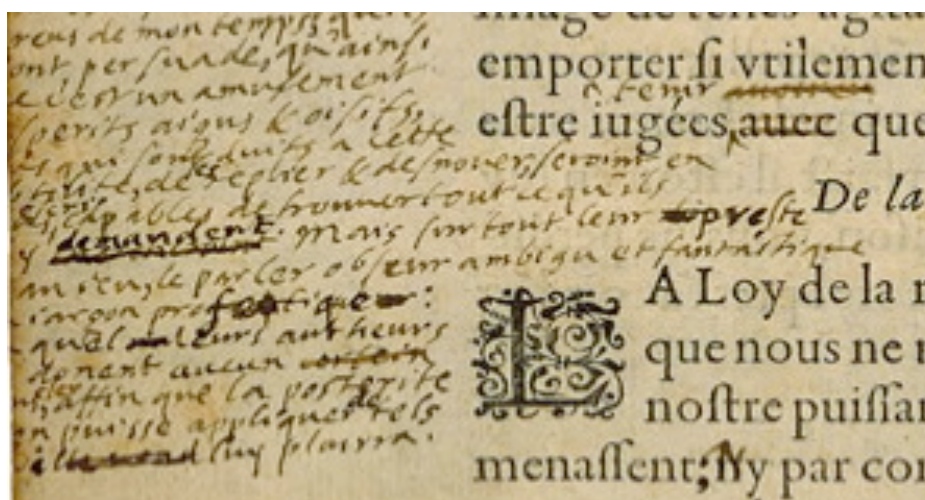 de mon temps
ont persuadé, qu'ainsi
c'est un amusement
sperits aigus & oisifs,
qui sont duits à cette
de les replier & desnouer, seroint en
capables de trouver tout ce qu'ils
y demandent. Mais sur tout leur preste
jeu, le parler obscur ambigu et fantastique
jargon profetique:
quel leurs autheurs
donent aucun
affin que la posterite
en puisse appliquer de tels
luy plairra.
image de telles agita
emporter si vtilemen
tenir
estre iugées, auec que
De la
LA Loy de la r
que nous ne
nostre puissan
menassent; Ny par con